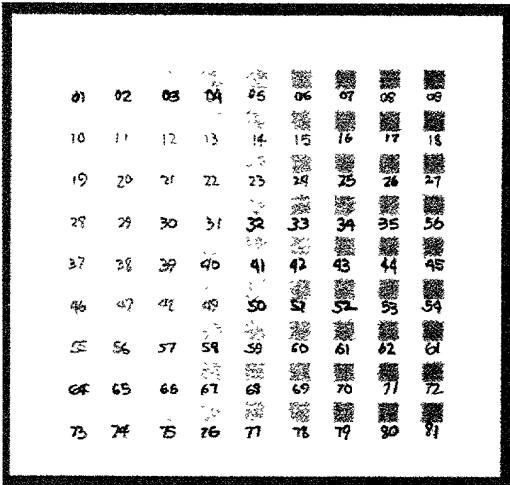 01 02 03 04 05 06 07 08 09
10 11 12 13 14 15 16 17 18
19 20 21 22 23 24 25 26 27
28 29 30 31 32 33 34 35 56
37 38 39 40 41 42 43 44 45
46 47 48 49 50 51 52 53 54
55 56 57 58 59 60 61 62 61
64 65 66 67 68 69 70 71 72
73 74 75 76 77 78 79 80 81